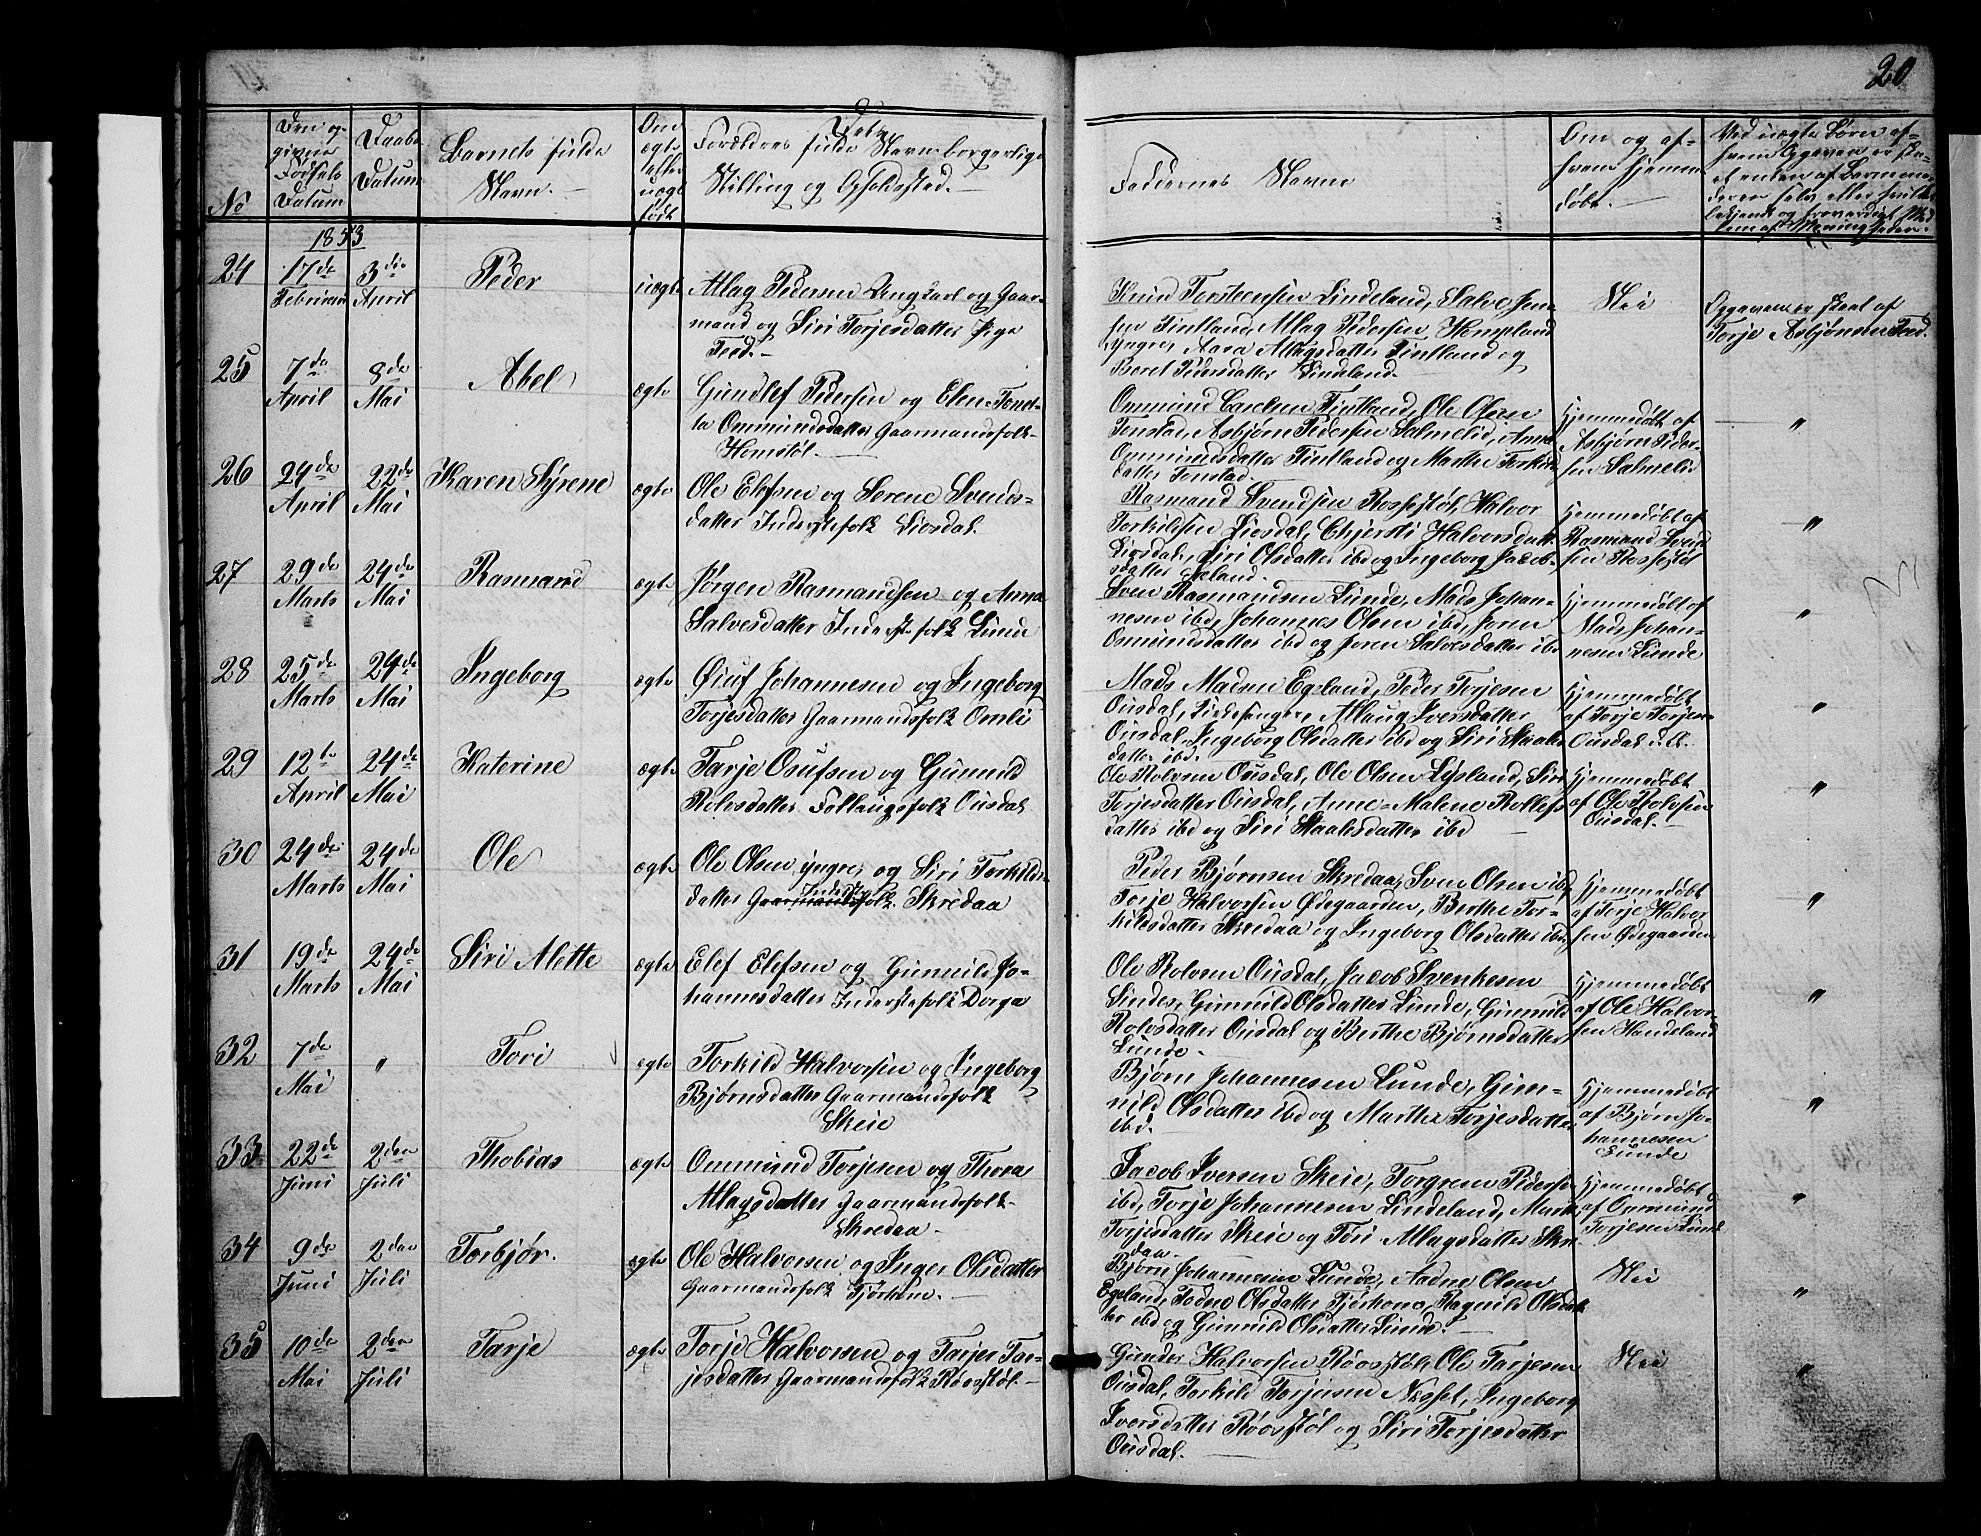 20
No
Den op-
givne
Fødsels
Datum
Daabs
Datum
Barnets fulde
Navn.
Om
ægte
eller
uægte
født
Forældres fulde Navn borgerlige
Stilling og Opholdssted.
Faddernes Navne
Om og af
hvem hjemme
døbt.
Ved uægte Børn af
1853
24
17de
Februar
3die
April
Peder
uægte
Atlag Pedersen Ungkarl og Gaar-
mand og Siri Torjesdatter Pige
Knud Torsteensen Lindeland, Salve Jen-
sen Tintland, Atlag Pedersen Hompland
yngre, Aasa Atlagsdatter Tintland og
Berel Pedersdatter Lindeland.
Nei
Opgaven er skeet af
Torje Asbjørnsen
25
7de
April
8de
Mai
Abel
ægte
Gundlef Pedersen og Elen Tonet-
ta Ommundsdatter Gaarmandsfolk
Homstøl.
Ommund Carelsen Tintland, Ole Olsen
Tonstad, Asbjørn Pedersen Salmelid, Anna
Ommundsdatter Tintland og Marthe Torkils
datter Tonstad.
Hjemmedøbt af
Asbjørn Peder-
sen Salmelid
"
26
24de
April
22de
Mai
Karen Syrene
ægte
Ole Elefsen og Serene Svends-
datter Inderstefolk Liosdal.
Rasmund Svendsen Rossestøl, Halvor
Torkildsen Liosdal, Chjersti Halvorsdatter
Liosdal, Siri Olsdatter ibd og Ingeborg Jacob-
sdatter
Hjemmedøbt af
Rasmund Svend
sen Rossestøl
"
27
29de
Marts
24de
Mai
Rasmund
ægte
Jørgen Rasmundsen og Anna
Salvesdatter Inderstefolk Lunde
Sven Rasmundsen Lunde, Mads Johan-
nesen ibd, Johannes Olsen ibd, Joren
Ommundsdatter ibd og Joren Salvesdatter ibd
Hjemmedøbt af
Mads Johan-
nesen Lunde
"
28
25de
Marts
24de
Mai
Ingeborg
ægte
Øiuf Johannesen og Ingeborg
Torjesdatter Gaarmandsfolk Omli
Mads Madsen Egeland, Peder Torjesen
Ousdal, Kirkesanger, Atlaug Iversdatter
Ousdal, Ingeborg Olsdatter ibd og Siri Staales
datter ibd.
Hjemmedøbt
af Torje Torjesen
Ousdal
"
29
12te
April
24de
Mai
Katerine
ægte
Tarje Osufsen og Gunuld
Rolvsdatter Føllaugsfolk Ousdal
Ole Rolvsen Ousdal, Ole Olsen Lysland, Siri
Torjesdatter Ousdal, Anne Malene Rollefs
datter ibd og Siri Staalesdatter ibd
Hjemmedøbt
af Ole Rolvsen
Ousdal.
"
30
24de
Marts
24de
Mai
Ole
ægte
Ole Olsen yngre og Siri Torkilds-
Inderste
datter Gaarmandsfolk Skredaa
Peder Bjørnsen Skredaa, Sven Olsen ibd,
Torje Halvorsen Ødegaarden, Berthe Tor-
kildsdatter Skredaa og Ingeborg Olsdatter ibd
Hjemmedøbt
af Torje Halvor
sen Ødegaarden
"
31
19de
Marts
24de
Mai
Siri Alette
ægte
Elef Elefsen og Gunuld Jo-
hannesdatter Inderstefolk Dorga
Ole Rolvsen Ousdal, Jacob Svenkesen
Lindes, Gunuld Olsdatter Lunde, Gunuld
Rolvsdatter Ousdal og Berthe Bjørnsdatter
Lunde.
Hjemmedøbt
af Ole Halvor-
sen Handeland
"
32
7de
Mai
"
Tori
ægte
Torkild Halvorsen og Ingeborg
Bjørnsdatter Gaarmandsfolk
Skeie
Bjørn Johannesen Lunde, Gun-
uld Olsdatter ibd og Marthe Torjesdatter
ibd.
Hjemmedøbt
af Bjørn Jo-
hannesen
Lunde
"
33
22de
Juni
2den
Juli
Thobias
ægte
Ommund Torjesen og Thora
Atlagsdatter Gaarmandsfolk
Skredaa
Jacob Iversen Skeie, Torgrem Pedersen
ibd, Torje Johannesen Lindeland, Marthe
Torjesdatter Skeie og Tori Atlagsdatter Skre-
daa.
Hjemmedøbt
af Ommund
Torjesen Lunde
"
34
9de
Juni
2den
Juli
Torbjør.
ægte
Ole Halvorsen og Inger Olsdatter
Gaarmandsfolk Fjørhom.
Bjørn Johannesen Lunde, Aadne Olsen
Egeland, Todne Olsdatter Fjørhom, Ragnild Olsdat
ter ibd og Gunuld Olsdatter Lunde.
Nei
"
35
10de
Mai
2den
Juli
Tarje
ægte
Torje Halvorsen og Tarjer Tar-
jesdatter Gaarmandsfolk Roosstøl.
Gunder Halvorsen Roosstøl, Ole Tarjesen
Ousdal, Torkild Torjusen Nesset, Ingeborg
Iversdatter Roosstøl og Siri Torjesdatter
Ousdal.
Nei
"